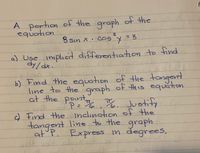 A portion of the graph of the
equation
8 sin x · cos² y = 3
a) Use implicit differentiation to find
dy/dx.
b) Find the equation of the tangent
line to the graph of this equation
at the point
P = π/6, π/6. Justify
c) Find the inclination of the
tangent line to the graph
at P. Express in degrees.